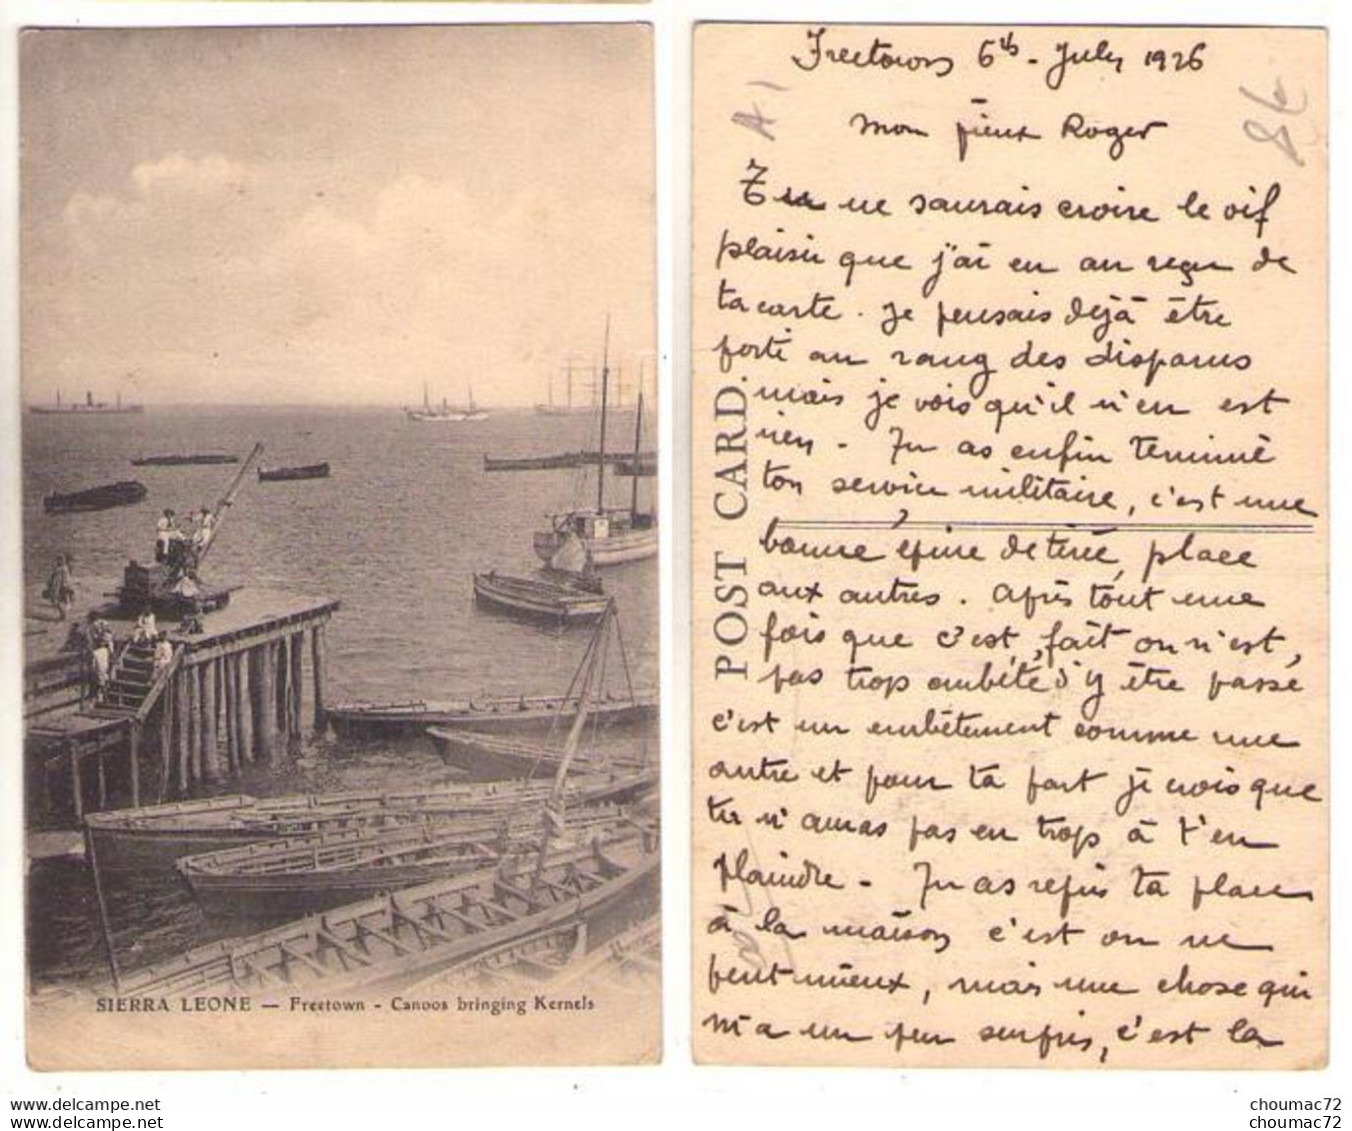 SIERRA LEONE — Freetown - Canoos bringing Kernels
POST CARD
A 1
Freetown 6th - July 1926
mon vieux Roger
Tu ne saurais croire le vif
plaisir que j'ai eu au reçu de
ta carte. Je pensais déjà être
porté au rang des disparus
mais je vois qu'il n'en est
rien. Tu as enfin terminé
ton service militaire, c'est une
bonne épine de tirée, place
aux autres. Après tout une
fois que c'est fait on n'est,
pas trop embêté d'y être passé
c'est un embêtement comme une
autre et pour ta part je crois que
tu n'auras pas eu trop à t'en
plaindre - Tu as repris ta place
à la maison c'est on ne
peut mieux, mais une chose qui
m'a un peu surpris, c'est la
www.delcampe.net
www.delcampe.net
choumac72
choumac72